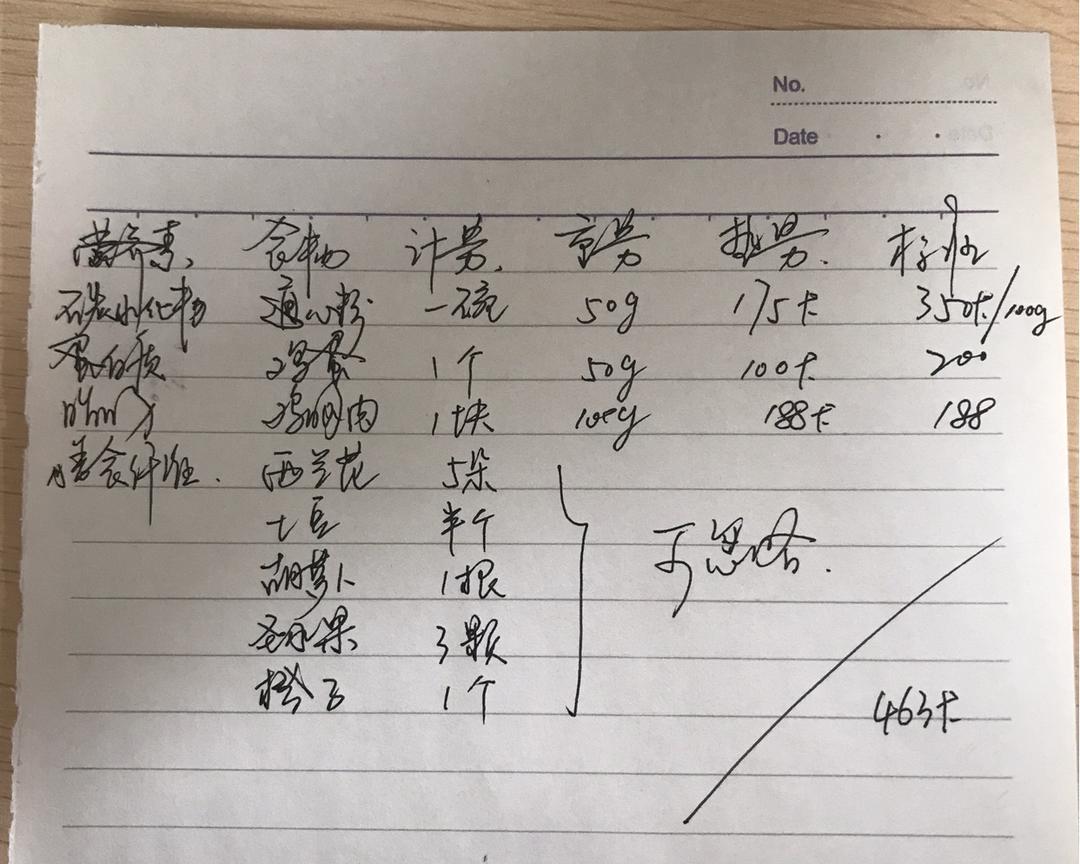 No.
Date
营养素、 食物 计量、 重量 热量. 标准
碳水化物 通心粉 一碗 50g 175卡 350卡/100g
蛋白质 鸡蛋 1个 50g 100卡 200
脂肪 鸡胸肉 1块 100g 188卡 188
膳食纤维. 西兰花 5朵
土豆 半个
胡萝卜 1根 可忽略.
圣女果 3颗
橙子 1个 463卡